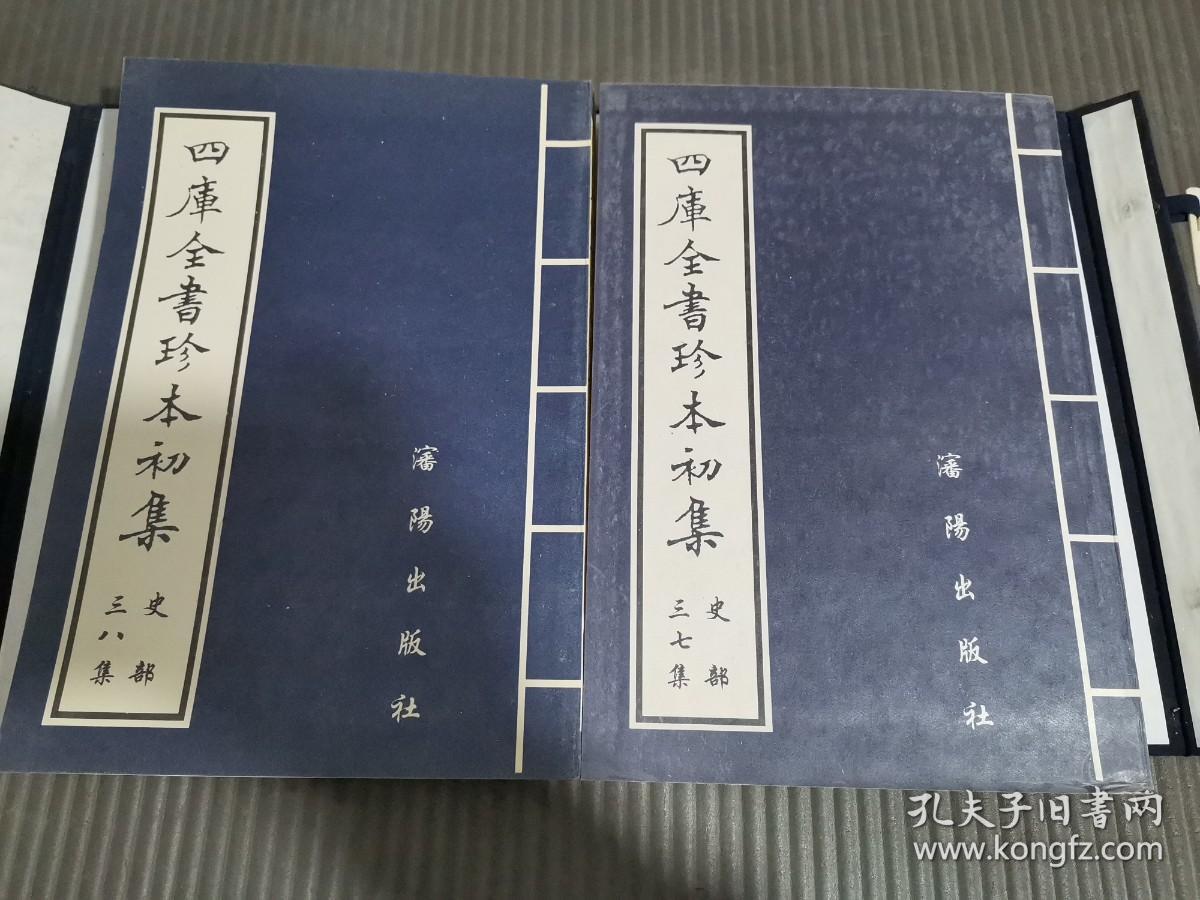 四庫全書珍本初集
史部
三八集
瀋陽出版社
四庫全書珍本初集
史部
三七集
瀋陽出版社
孔夫子旧书网
www.kongfz.com